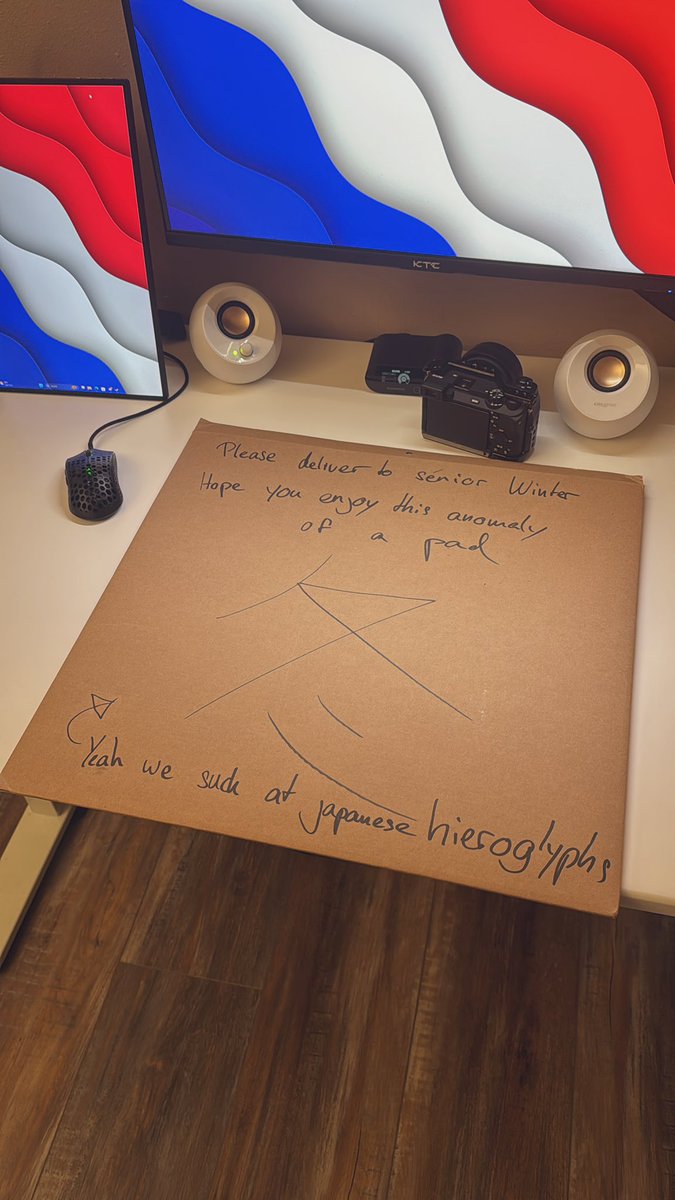 KTC
Please deliver to sénior Winter
Hope you enjoy this anomaly
of a pad
冬
Yeah we suck at japanese hieroglyphs